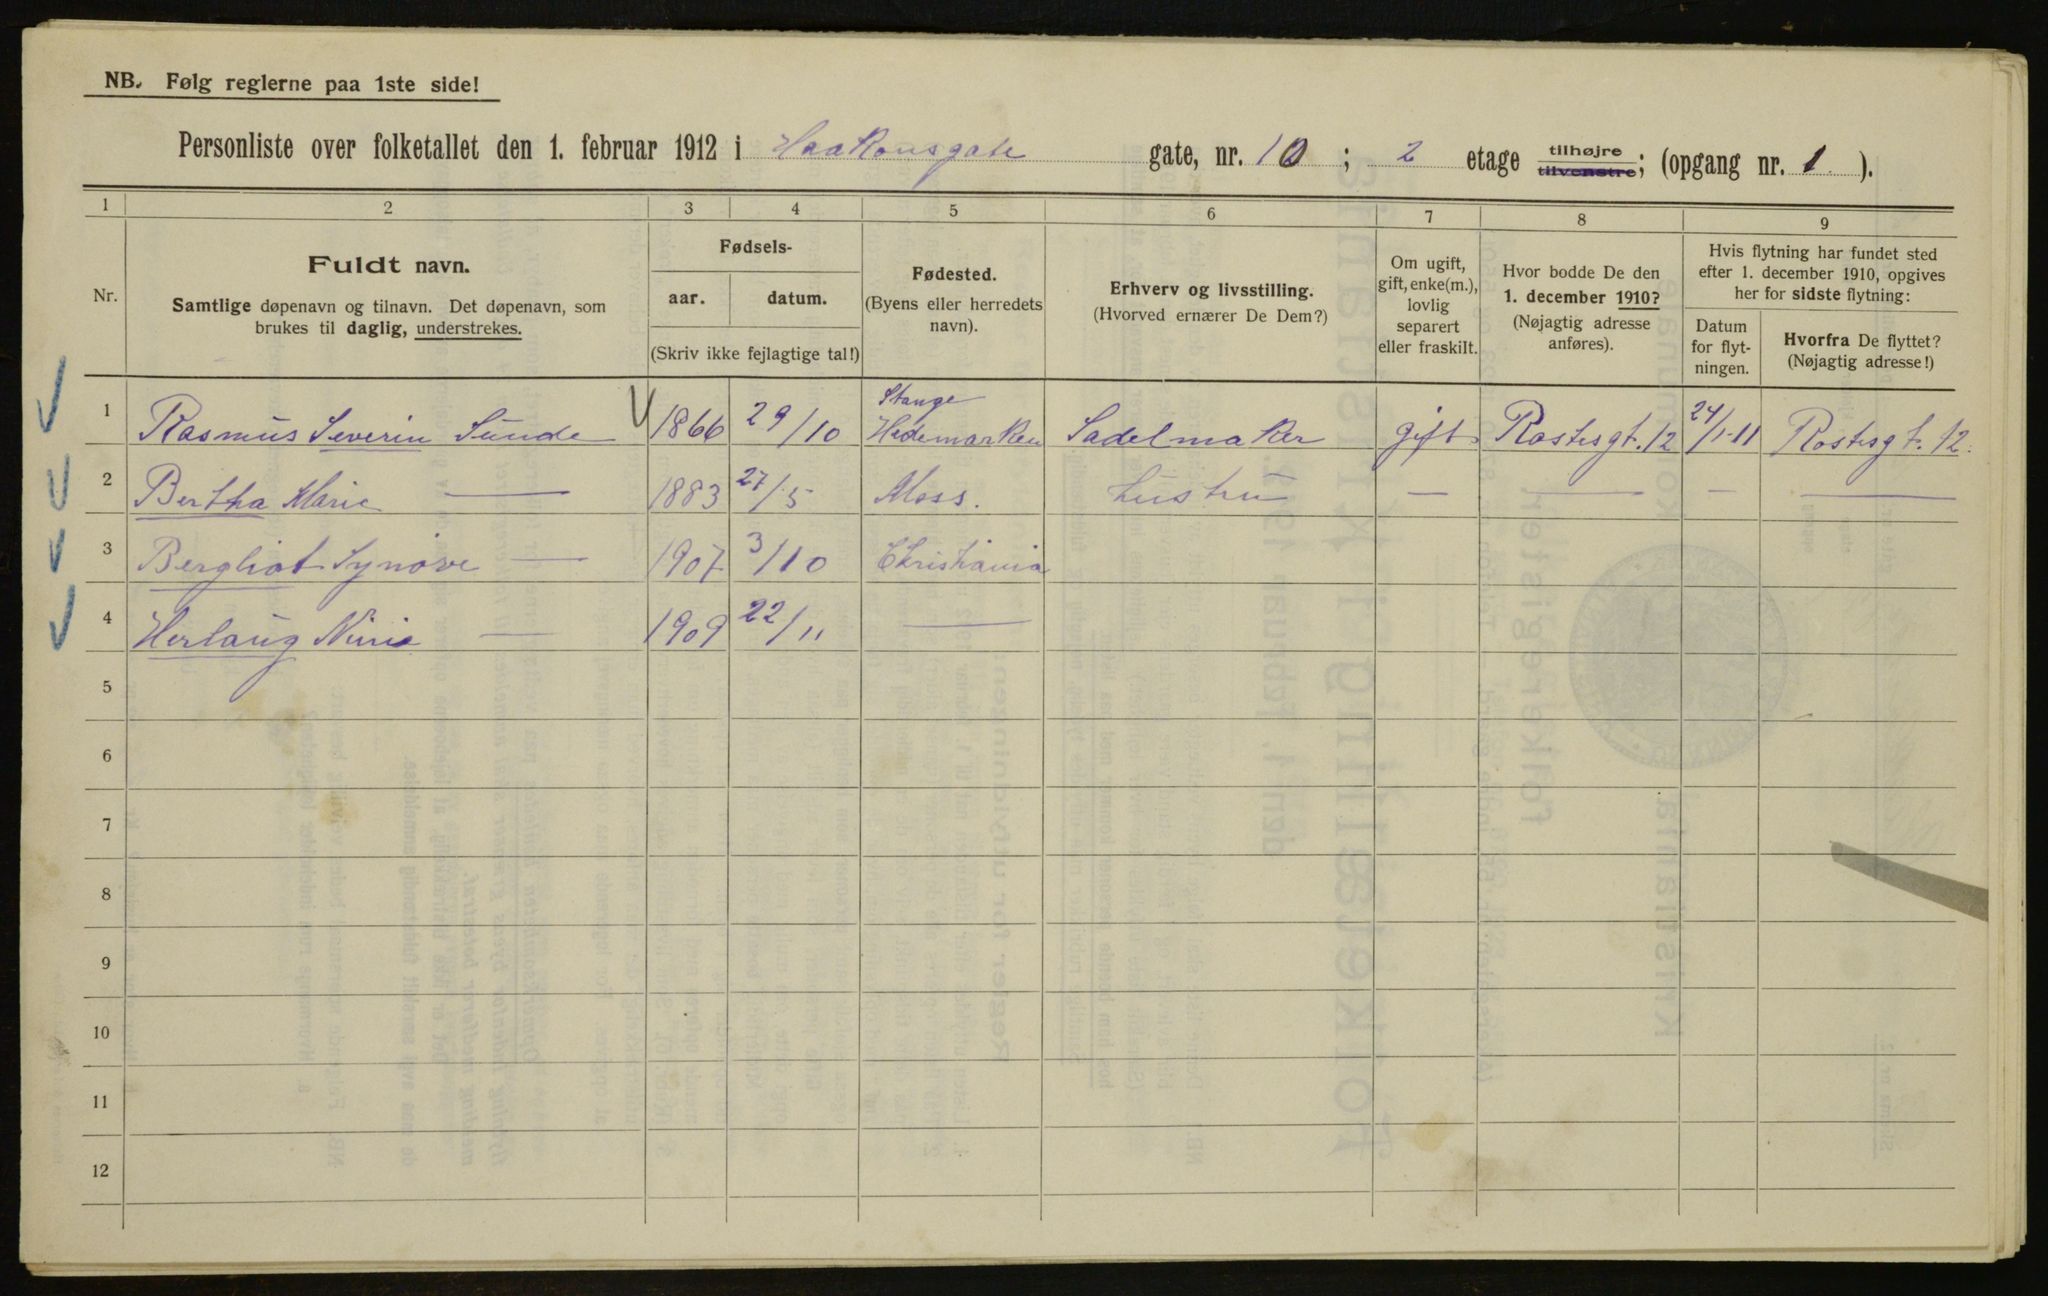 NB. Følg reglerne paa 1ste side!
Personliste over folketallet den 1. februar 1912 i Haakonsgate gate, nr. 10 ; 2 etage tilhøjre tilvenstre; (opgang nr. 1 ).
1 2 3 4 5 6 7 8 9
Nr.
Fuldt navn.
Samtlige døpenavn og tilnavn. Det døpenavn, som
brukes til daglig, understrekes.
Fødsels-
aar. datum.
(Skriv ikke fejlagtige tal!)
Fødested.
(Byens eller herredets
navn).
Erhverv og livsstilling.
(Hvorved ernærer De Dem?)
Om ugift,
gift, enke(m.),
lovlig
separert
eller fraskilt.
Hvor bodde De den
1. december 1910?
(Nøjagtig adresse
anføres).
Hvis flytning har fundet sted
efter 1. december 1910, opgives
her for sidste flytning:
Datum
for flyt-
ningen.
Hvorfra De flyttet?
(Nøjagtig adresse!)
1 Rasmus Severin Sunde 1866 29/10 Stange Hedemarken Sadelmaker gift Rostesgt. 12 24/1-11 Rostesgt. 12.
2 Bertha Marie — 1883 27/5 Moss. hustru — — — —
3 Bergliot Synøve — 1907 3/10 Christiania
4 Herlaug — 1909 22/11 —
5
6
7
8
9
10
11
12